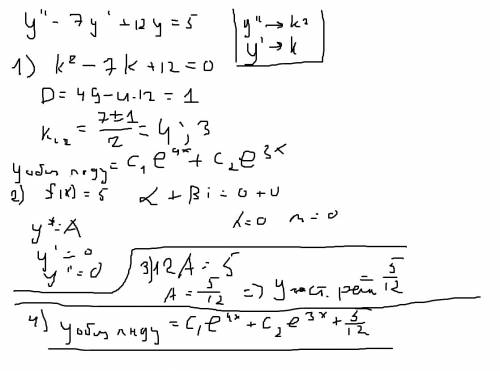 y'' - 7y' + 12y = 5
y'' → k²
y' → k
1) k² - 7k + 12 = 0
D = 49 - 4·12 = 1
k₁,₂ = (7±1)/2 = 4; 3
y общ лнду = C₁e^4x + C₂e^3x
2) f(x) = 5 α + βi = 0 + 0
α=0 n=0
y* = A
y' = 0
y'' = 0
3) 12A = 5
A = 5/12 => y част. реш = 5/12
4) y общ лнду = C₁e^4x + C₂e^3x + 5/12